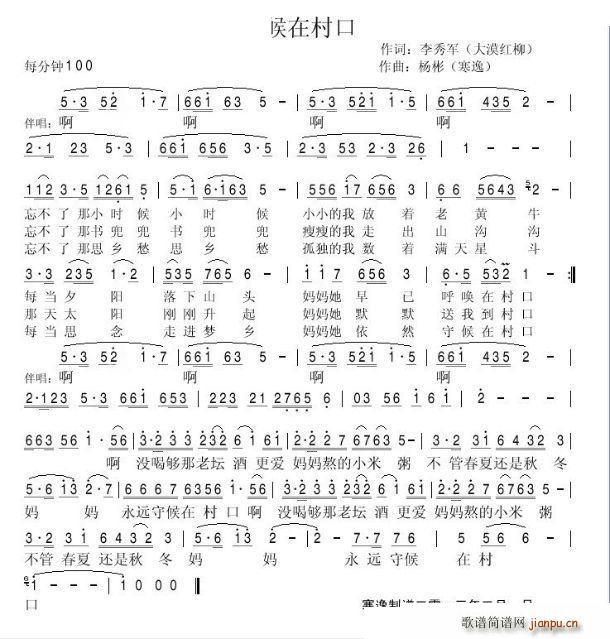 候在村口
作词：李秀军（大漠红柳）
每分钟100
作曲：杨彬（寒逸）
5·3 52 1·7 | 661 63 5 - | 5·3 521 1·5 | 661 435 2 - |
伴唱：啊 啊 啊 啊
2·1 23 5·3 | 661 656 3·5 | 5·3 52·3 2·3 26 | 1 - - - |
112 3·5 1261 5 | 5·1 6·163 5 - | 5556 17 656 3 | 6 6 5643 2 - |
忘不了那小时候 小时候 小小的我放着老黄牛
忘不了那书兜兜 书兜兜 瘦瘦的我走出山沟沟
忘不了那思乡愁 思乡愁 孤独的我数着满天星斗
3·3 235 1·2 | 535 765 6 - | 1 17 656 3 | 6·5 532 1 - :||
每当夕阳落下山头 妈妈她早已呼唤在村口
那天太阳刚刚升起 妈妈她默默送我到村口
每当思念走进梦乡 妈妈她依然守候在村口
5·3 52 1·7 | 661 63 5 - | 5·3 521 1·5 | 661 435 2 - |
伴唱：啊 啊 啊 啊
2·123 5·3 | 663 653 5 - | 223 21 2765 6 | 03 56 1612 | 1 - - - |
663 56 1· 56 | 3·2 33 2 232 6 1 61 | 2·2 2 7 6763 5 - | 3·2 31 6 432 3 |
啊 没喝够那老坛酒更爱妈妈熬的小米粥 不管春夏还是秋冬
5·6 13 2·7 | 66 7 67 6356 56 | 3·2 33 2232 6 161 | 2·2 2 7 6765 5 - |
妈妈 永远守候在村口啊 没喝够那老坛酒更爱妈妈熬的小米粥
3·2 31 6 432 3 | 5·6 13 2 - | 5·6 13 2·7 | 6 - 5 - |
不管春夏还是秋冬妈妈 永远守候在村
1 - - - | 1 0 0 0 ||
口
歌谱简谱网
jianpu.cn